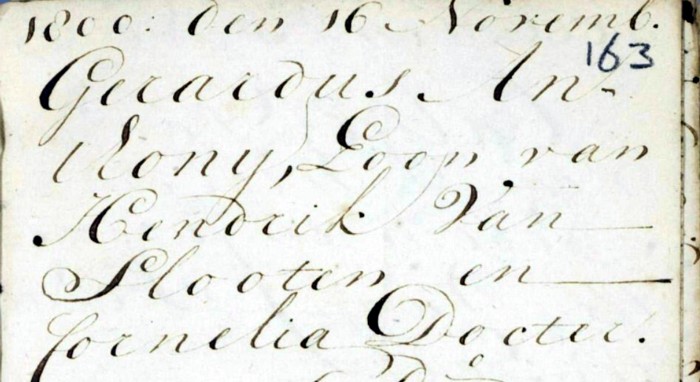 1800: den 16 Novemb.
163
Gerardus An-
thony, Zoon van
Hendrik Van
Slooten en
Cornelia Docter.